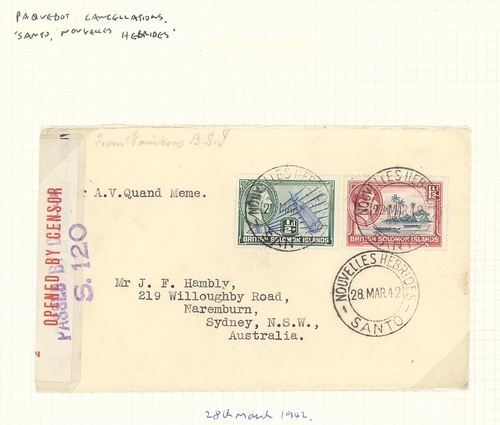 PAQUEBOT CANCELLATIONS.
'SANTO, NOUVELLES HEBRIDES'
From Vanikoro B.S.I
r A.V.Quand Meme.
OPENED BY CENSOR
PASSED BY
S. 120
NOUVELLES HEB
½D
BRITISH SOLOMON ISLANDS
NOUVELLES HEB
1½D
BRITISH SOLOMON ISLANDS
Mr J. F. Hambly,
219 Willoughby Road,
Naremburn,
Sydney, N.S.W.,
Australia.
NOUVELLES HEBRIDES
28.MAR.42
SANTO
28th March 1942.